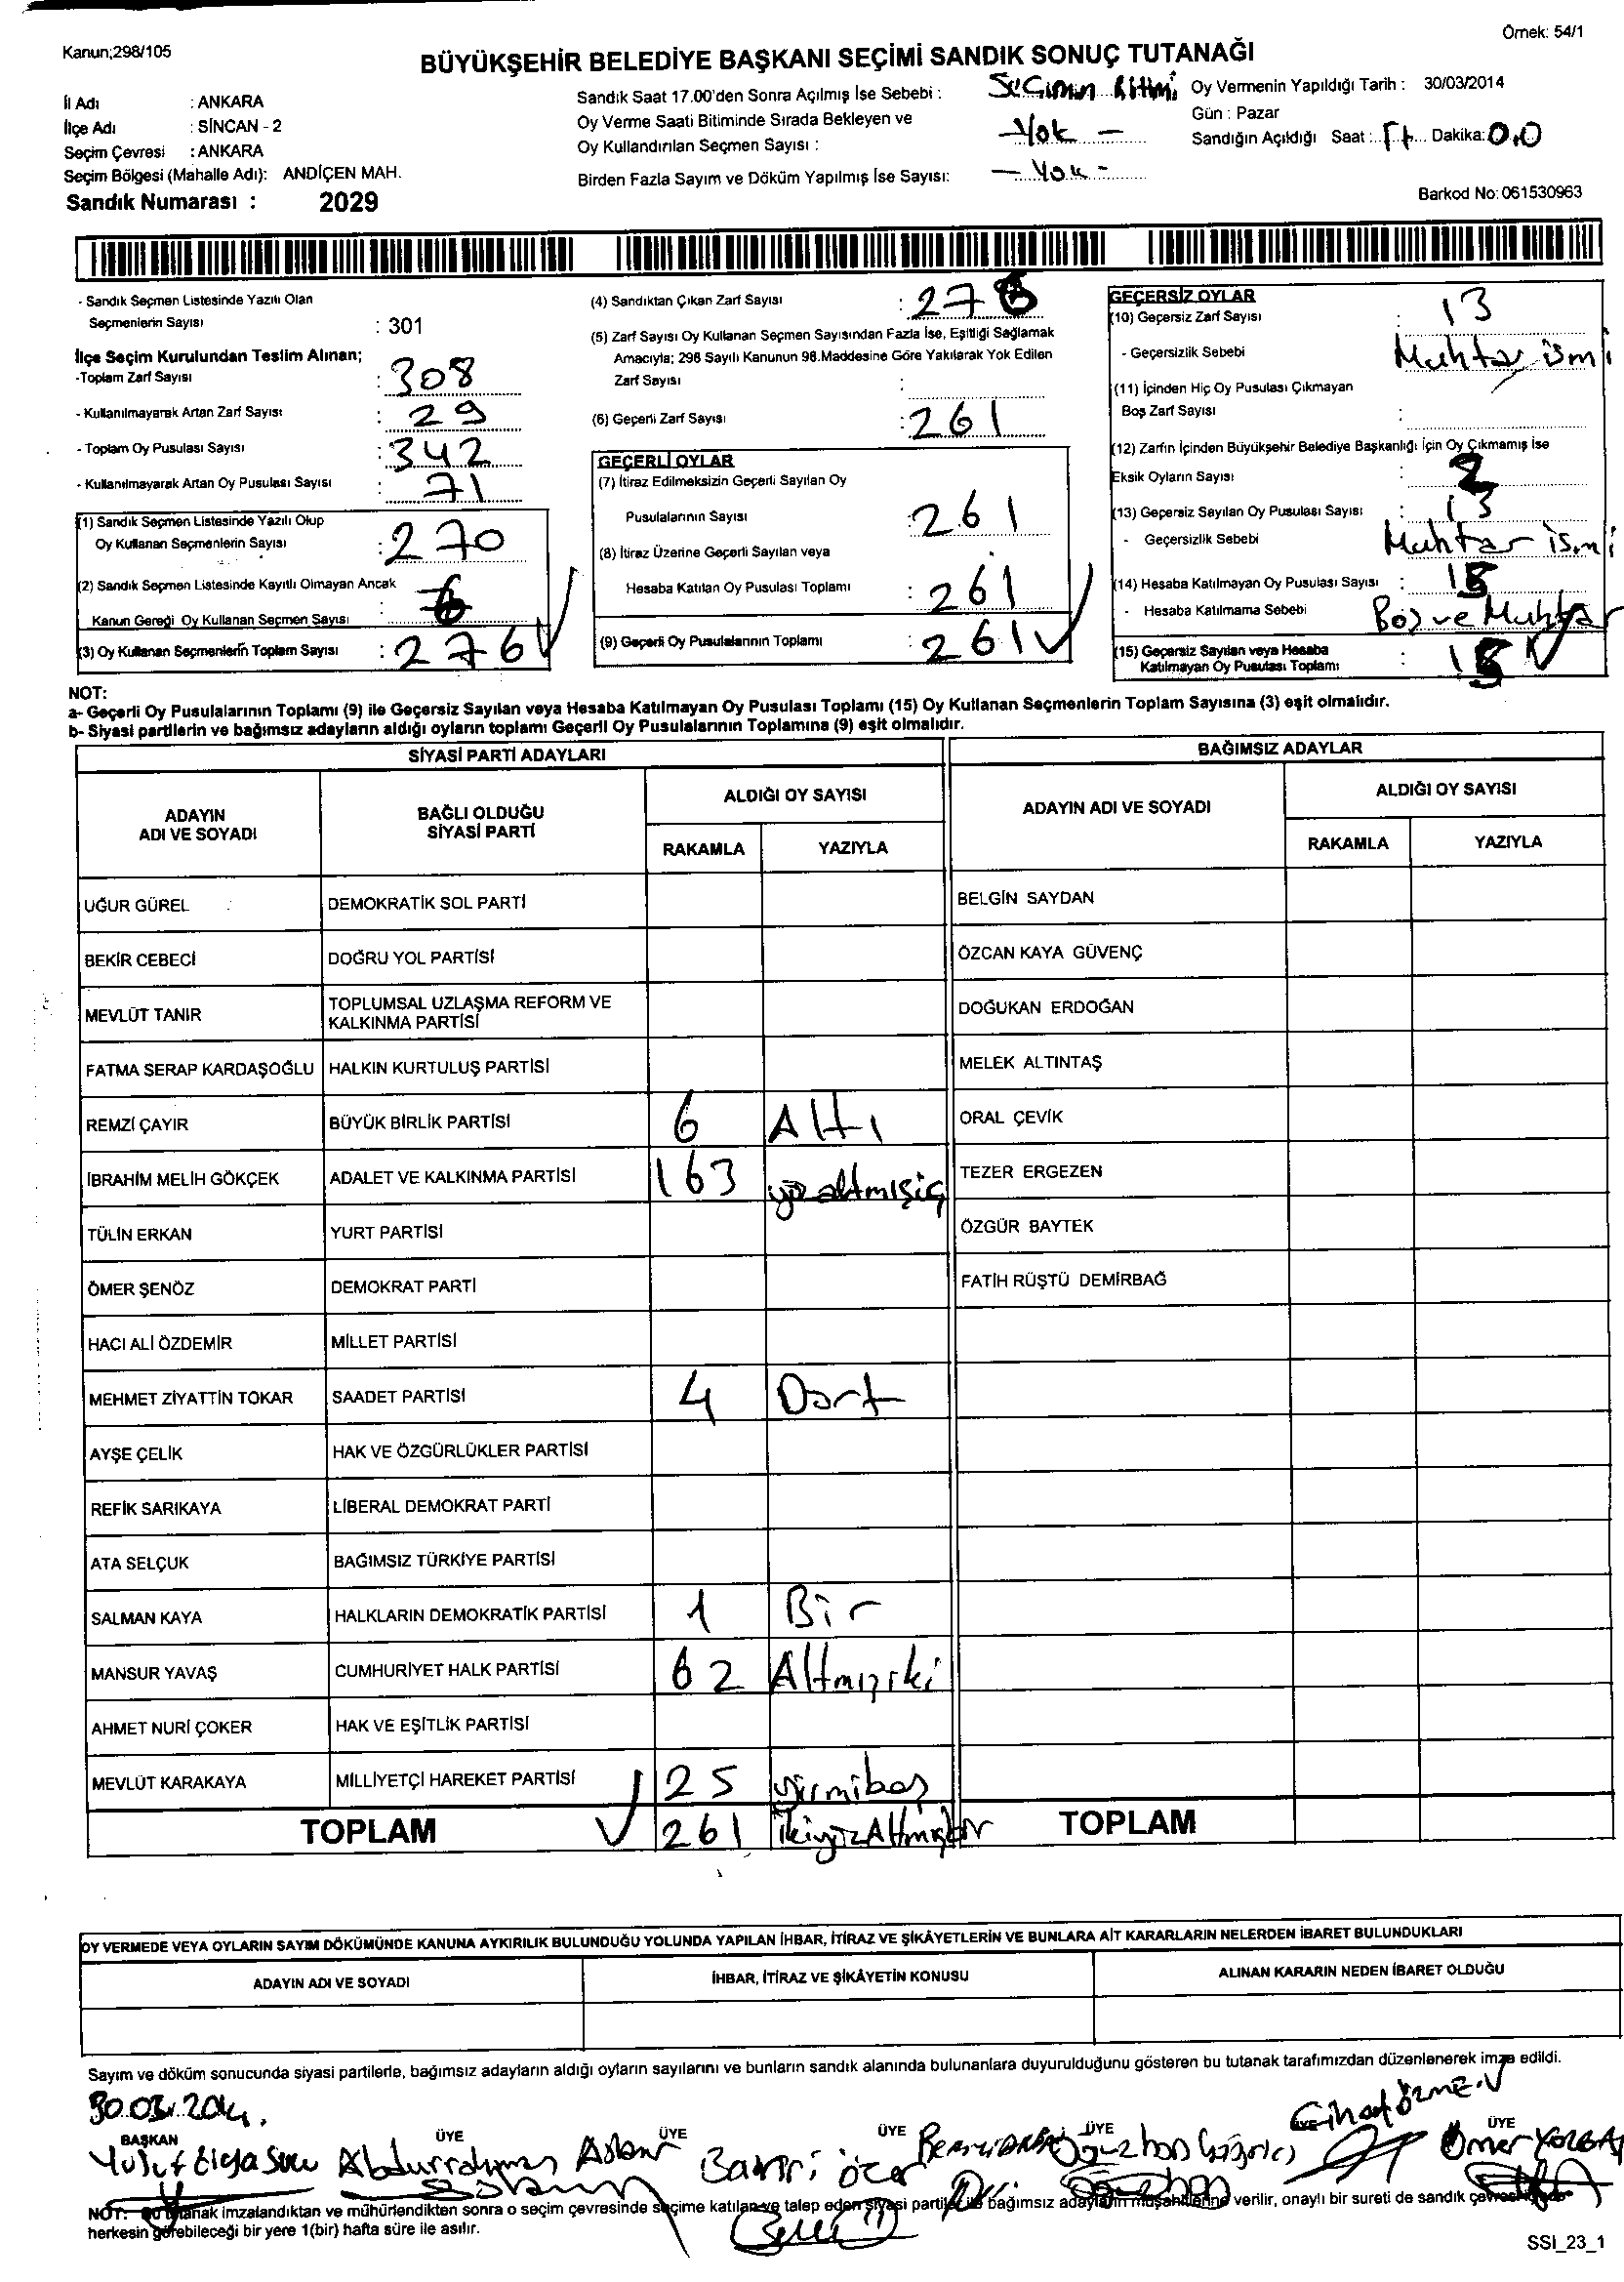 Kanun;298/105
Örnek: 54/1
BÜYÜKŞEHİR BELEDİYE BAŞKANI SEÇİMİ SANDIK SONUÇ TUTANAĞI
İl Adı : ANKARA
İlçe Adı : SİNCAN - 2
Seçim Çevresi : ANKARA
Seçim Bölgesi (Mahalle Adı): ANDİÇEN MAH.
Sandık Numarası : 2029
Sandık Saat 17.00'den Sonra Açılmış İse Sebebi :
Oy Verme Saati Bitiminde Sırada Bekleyen ve
Oy Kullandırılan Seçmen Sayısı : -Yok -
Birden Fazla Sayım ve Döküm Yapılmış İse Sayısı: - Yok -
Oy Vermenin Yapıldığı Tarih : 30/03/2014
Gün : Pazar
Sandığın Açıldığı Saat : Dakika: 00
Barkod No: 061530963
- Sandık Seçmen Listesinde Yazılı Olan
Seçmenlerin Sayısı : 301
İlçe Seçim Kurulundan Teslim Alınan;
-Toplam Zarf Sayısı : 308
- Kullanılmayarak Artan Zarf Sayısı : 29
- Toplam Oy Pusulası Sayısı : 342
- Kullanılmayarak Artan Oy Pusulası Sayısı : 71
(1) Sandık Seçmen Listesinde Yazılı Olup
Oy Kullanan Seçmenlerin Sayısı : 270
(2) Sandık Seçmen Listesinde Kayıtlı Olmayan Ancak
Kanun Gereği Oy Kullanan Seçmen Sayısı : 6
(3) Oy Kullanan Seçmenlerin Toplam Sayısı : 276
(4) Sandıktan Çıkan Zarf Sayısı : 276
(5) Zarf Sayısı Oy Kullanan Seçmen Sayısından Fazla İse, Eşitliği Sağlamak
Amacıyla; 298 Sayılı Kanunun 98.Maddesine Göre Yakılarak Yok Edilen
Zarf Sayısı :
(6) Geçerli Zarf Sayısı : 261
GEÇERLİ OYLAR
(7) İtiraz Edilmeksizin Geçerli Sayılan Oy
Pusulalarının Sayısı : 261
(8) İtiraz Üzerine Geçerli Sayılan veya
Hesaba Katılan Oy Pusulası Toplamı : 261
(9) Geçerli Oy Pusulalarının Toplamı : 261
GEÇERSİZ OYLAR
(10) Geçersiz Zarf Sayısı : 13
- Geçersizlik Sebebi Muhtar ismi
(11) İçinden Hiç Oy Pusulası Çıkmayan
Boş Zarf Sayısı :
(12) Zarfın İçinden Büyükşehir Belediye Başkanlığı İçin Oy Çıkmamış İse
Eksik Oyların Sayısı : 2
(13) Geçersiz Sayılan Oy Pusulası Sayısı : 13
- Geçersizlik Sebebi Muhtar ismi
(14) Hesaba Katılmayan Oy Pusulası Sayısı : 15
- Hesaba Katılmama Sebebi Boş ve Muhtar
(15) Geçersiz Sayılan veya Hesaba
Katılmayan Oy Pusulası Toplamı : 15
NOT:
a- Geçerli Oy Pusulalarının Toplamı (9) ile Geçersiz Sayılan veya Hesaba Katılmayan Oy Pusulası Toplamı (15) Oy Kullanan Seçmenlerin Toplam Sayısına (3) eşit olmalıdır.
b- Siyasi partilerin ve bağımsız adayların aldığı oyların toplamı Geçerli Oy Pusulalarının Toplamına (9) eşit olmalıdır.
SİYASİ PARTİ ADAYLARI
BAĞIMSIZ ADAYLAR
ADAYIN
ADI VE SOYADI
BAĞLI OLDUĞU
SİYASİ PARTİ
ALDIĞI OY SAYISI
RAKAMLA YAZIYLA
ADAYIN ADI VE SOYADI
ALDIĞI OY SAYISI
RAKAMLA YAZIYLA
UĞUR GÜREL DEMOKRATİK SOL PARTİ BELGİN SAYDAN
BEKİR CEBECİ DOĞRU YOL PARTİSİ ÖZCAN KAYA GÜVENÇ
MEVLÜT TANIR TOPLUMSAL UZLAŞMA REFORM VE
KALKINMA PARTİSİ DOĞUKAN ERDOĞAN
FATMA SERAP KARDAŞOĞLU HALKIN KURTULUŞ PARTİSİ MELEK ALTINTAŞ
REMZİ ÇAYIR BÜYÜK BİRLİK PARTİSİ 6 Altı ORAL ÇEVİK
İBRAHİM MELİH GÖKÇEK ADALET VE KALKINMA PARTİSİ 163 yüzaltmışüç TEZER ERGEZEN
TÜLİN ERKAN YURT PARTİSİ ÖZGÜR BAYTEK
ÖMER ŞENÖZ DEMOKRAT PARTİ FATİH RÜŞTÜ DEMİRBAĞ
HACI ALİ ÖZDEMİR MİLLET PARTİSİ
MEHMET ZİYATTİN TOKAR SAADET PARTİSİ 4 Dört
AYŞE ÇELİK HAK VE ÖZGÜRLÜKLER PARTİSİ
REFİK SARIKAYA LİBERAL DEMOKRAT PARTİ
ATA SELÇUK BAĞIMSIZ TÜRKİYE PARTİSİ
SALMAN KAYA HALKLARIN DEMOKRATİK PARTİSİ 1 Bir
MANSUR YAVAŞ CUMHURİYET HALK PARTİSİ 62 Altmışiki
AHMET NURİ ÇOKER HAK VE EŞİTLİK PARTİSİ
MEVLÜT KARAKAYA MİLLİYETÇİ HAREKET PARTİSİ 25 yirmibeş
TOPLAM 261 ikiyüzAltmışbir TOPLAM
OY VERMEDE VEYA OYLARIN SAYIM DÖKÜMÜNDE KANUNA AYKIRILIK BULUNDUĞU YOLUNDA YAPILAN İHBAR, İTİRAZ VE ŞİKÂYETLERİN VE BUNLARA AİT KARARLARIN NELERDEN İBARET BULUNDUKLARI
ADAYIN ADI VE SOYADI İHBAR, İTİRAZ VE ŞİKÂYETİN KONUSU ALINAN KARARIN NEDEN İBARET OLDUĞU
Sayım ve döküm sonucunda siyasi partilerle, bağımsız adayların aldığı oyların sayılarını ve bunların sandık alanında bulunanlara duyurulduğunu gösteren bu tutanak tarafımızdan düzenlenerek imza edildi.
30.03.2014.
BAŞKAN ÜYE ÜYE ÜYE ÜYE ÜYE ÜYE
Abdurrahman Aslan
NOT: Bu tutanak imzalandıktan ve mühürlendikten sonra o seçim çevresinde seçime katılan ve talep eden siyasi partiler ile bağımsız adayların müşahitlerine verilir, onaylı bir sureti de sandık çevresinde
herkesin görebileceği bir yere 1(bir) hafta süre ile asılır.
SSI_23_1